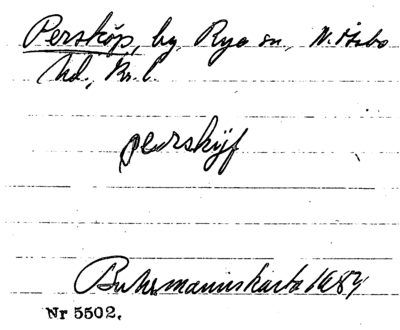 Persköp, by, Rya sn, N. Åsbo
hd, Kr. l.
perskijf
Buhrmannskarta 1684
Nr 5502.